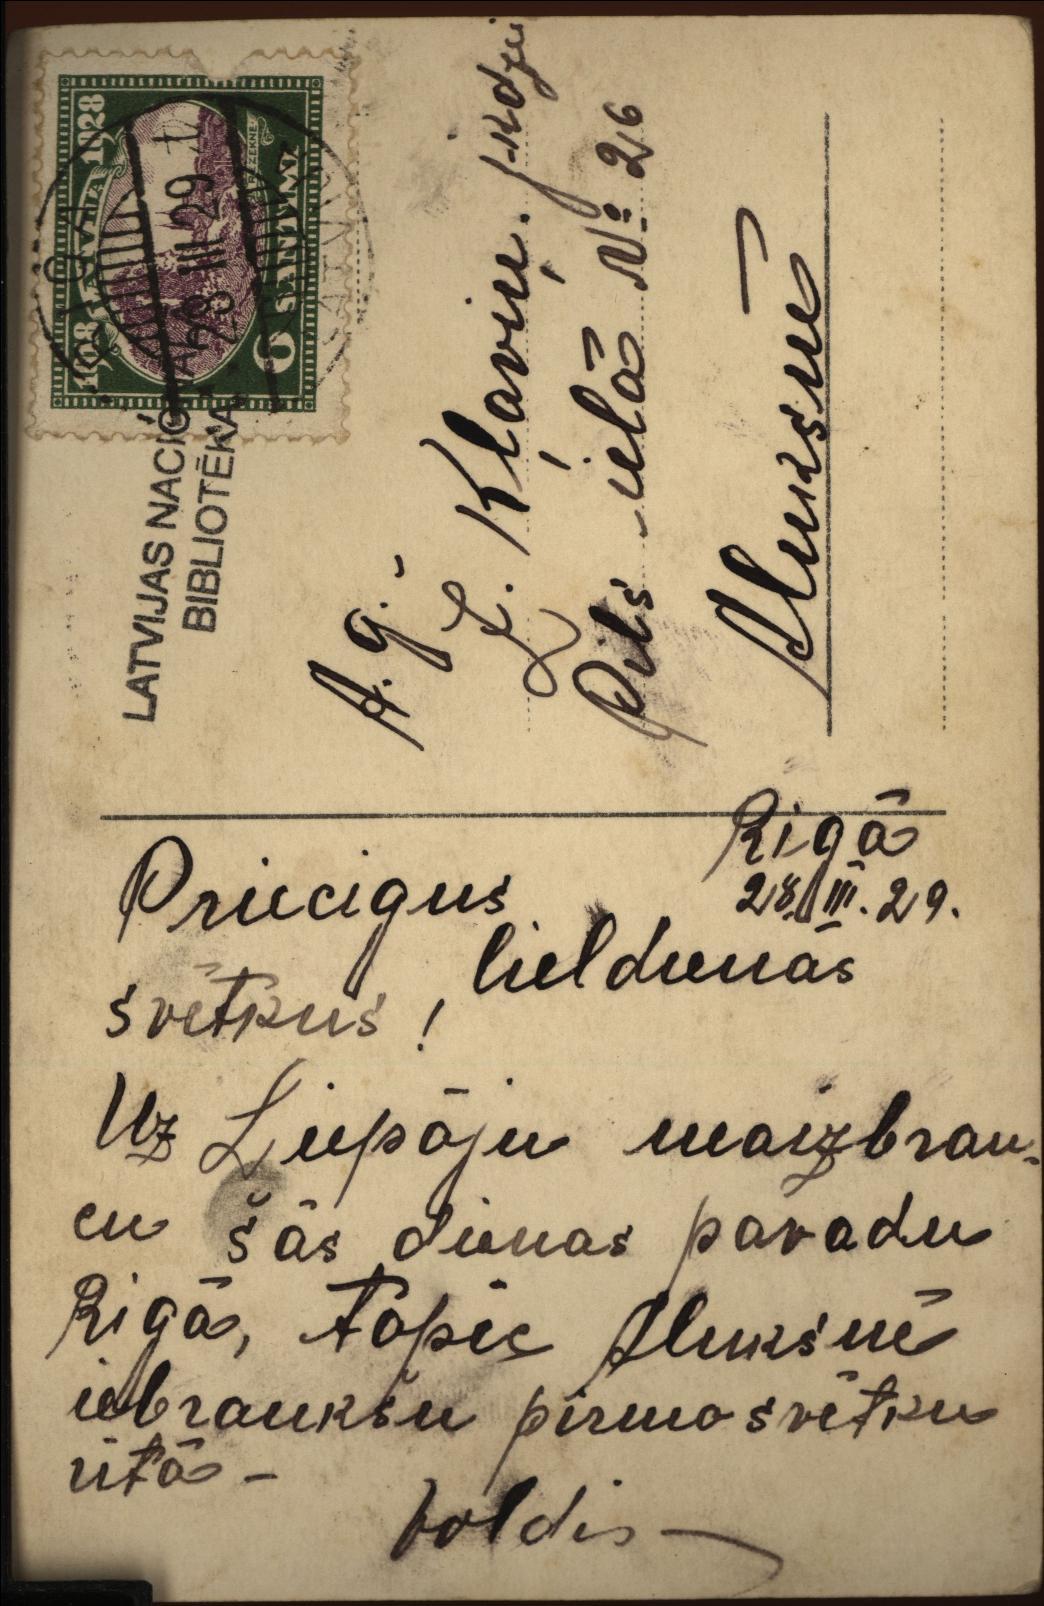 1918 LATVIJA 1928
6 SANTIMI
28 III 29
LATVIJAS NACIONĀLĀ
BIBLIOTĒKA
A. g.
L. Kļaviņ. j-kdze
Pils ielā № 26
Aluksnē
Rigā
28. III. 29.
Priecigus
lieldienās
svētkus !
Uz Liepāju neaizbrau-
cu šās dienas pavadu
Rigā, tāpēc Aluksnē
iebraukšu pirmosvētku
ritā –
Voldis